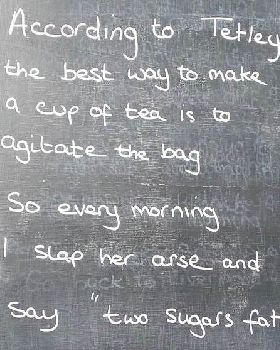 According to Tetley
the best way to make
a cup of tea is to
agitate the bag
So every morning
I slap her arse and
say "two sugars fat